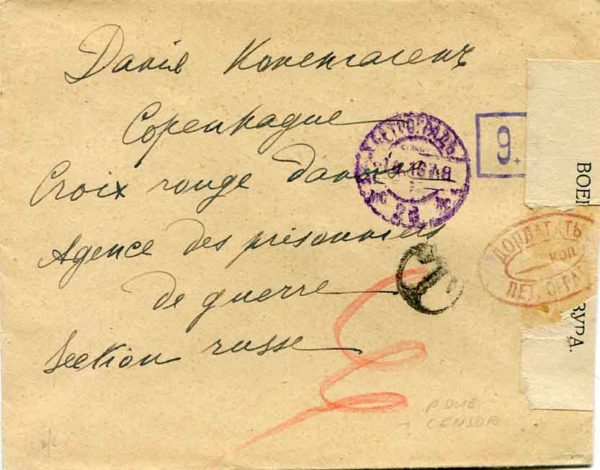 Данія Копенгагенъ
Copenhague
Croix rouge danoise
Agence des prisonniers
de guerre
Section russe
ПЕТРОГРАДЪ
9.
T
ДОПЛАТИТЬ
коп
ПЕТРОГРАД
ВОЕН
ЗУРА.
P DUE
CENSOR